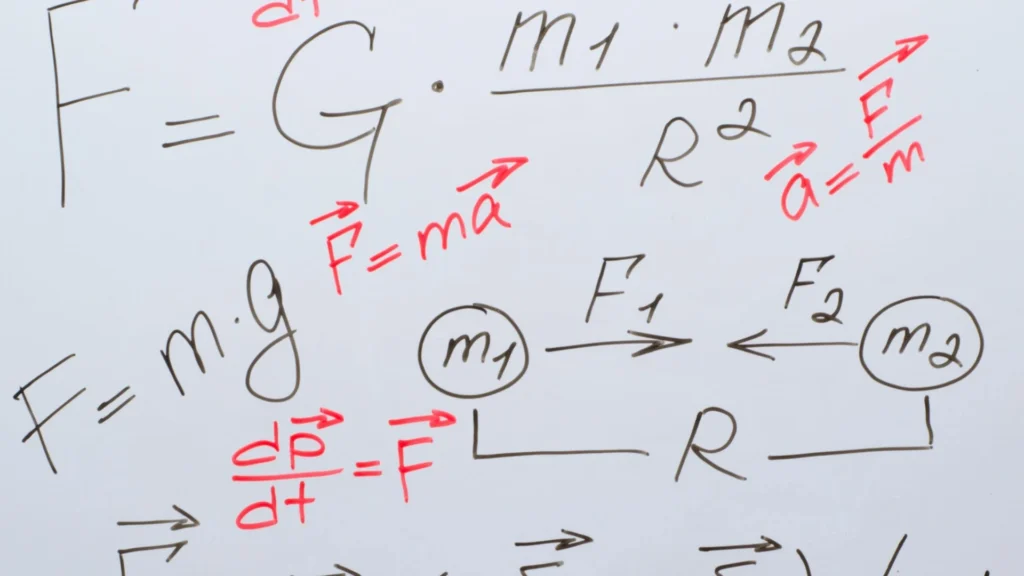 F = G · m₁ · m₂ / R²
a⃗ = F⃗ / m
F⃗ = ma⃗
F = m·g
m₁ F₁ F₂ m₂
R
dp⃗ / dt = F⃗